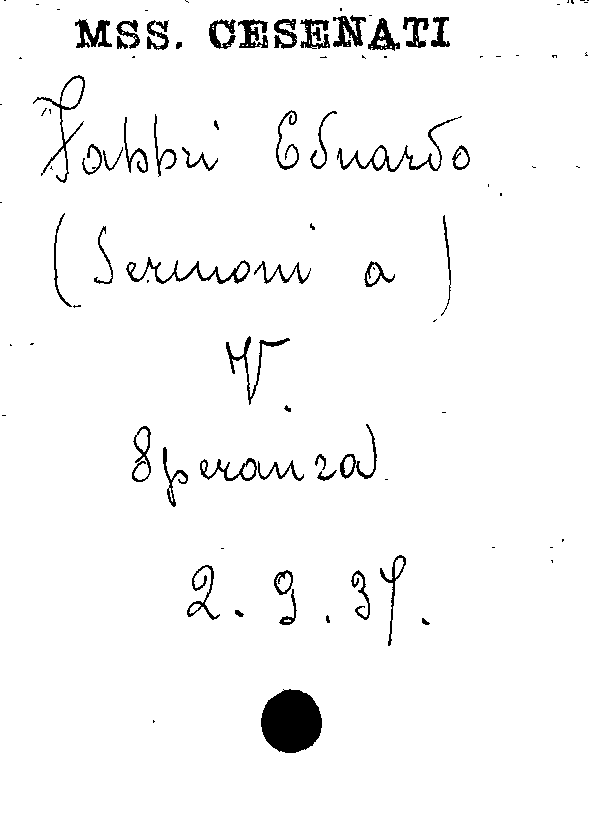 MSS. CESENATI
Fabbri Eduardo
(Sermoni a )
V.
Speranza
2.9.37.